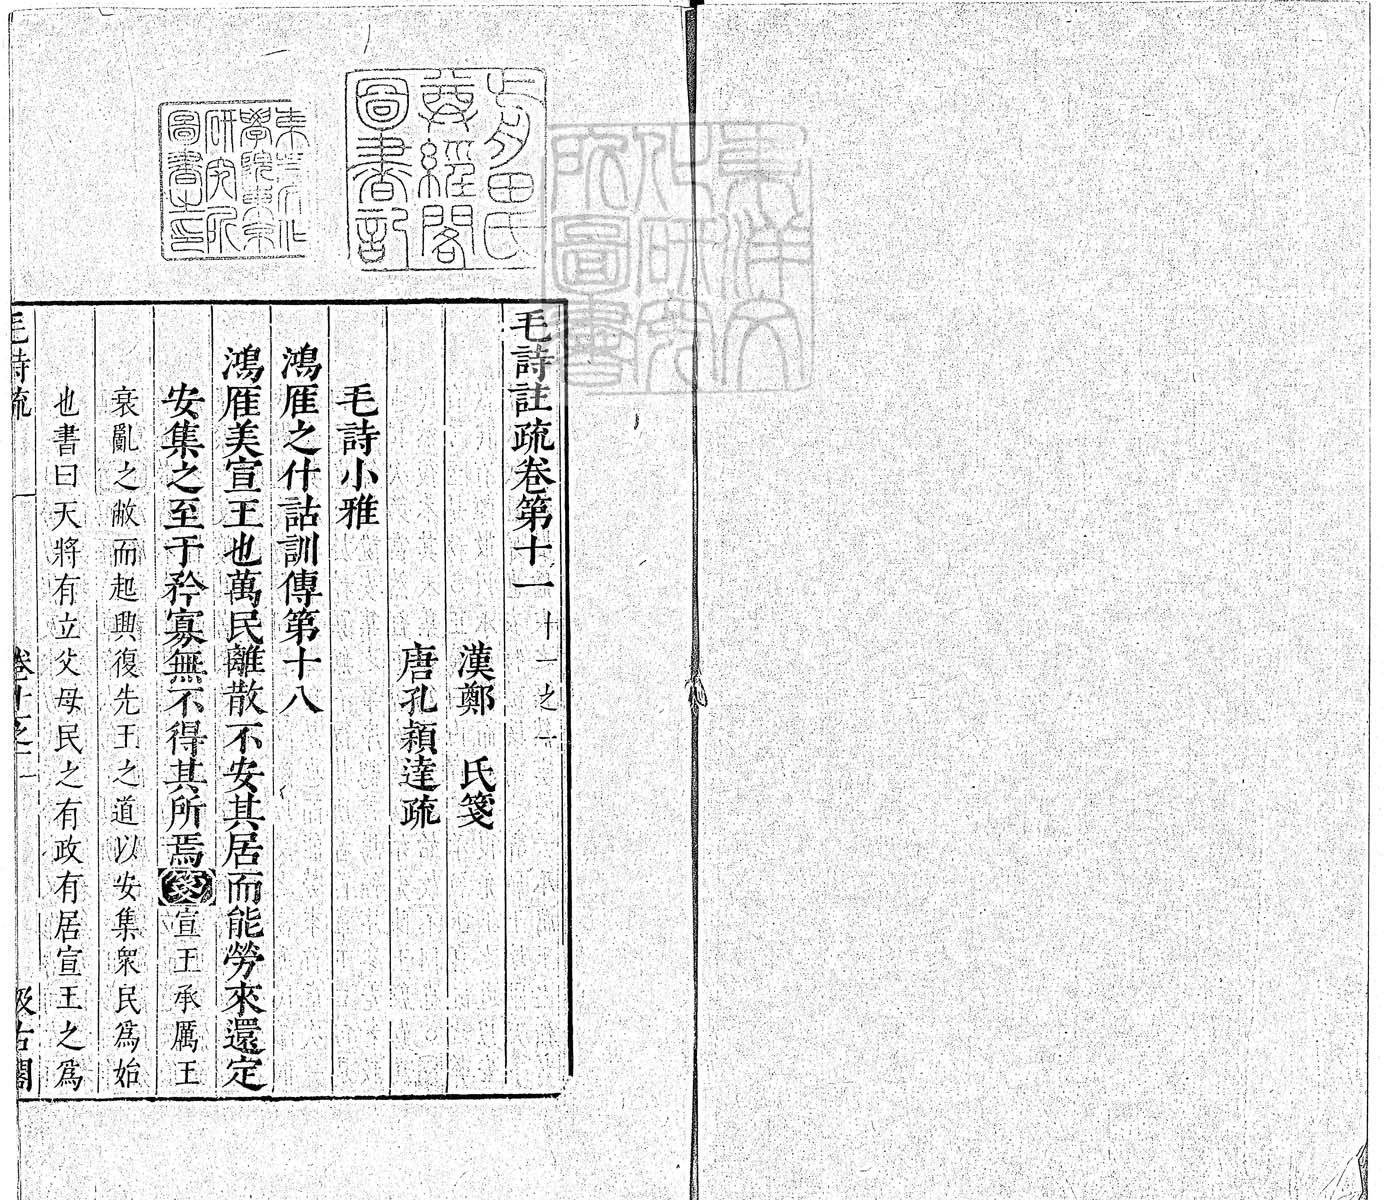 毛詩註疏卷第十一 十一之一
漢鄭 氏箋
唐孔穎達疏
毛詩小雅
鴻雁之什詁訓傳第十八
鴻雁美宣王也萬民離散不安其居而能勞來還定
安集之至于矜寡無不得其所焉箋宣王承厲王
衰亂之敝而起興復先王之道以安集衆民爲始
也書曰天將有立父母民之有政有居宣王之爲
毛詩疏 卷十一之一 一 汲古閣
前田氏
尊經閣
圖書記
東方文化
學院東京
研究所
圖書之印
東洋文
化研究
所圖書